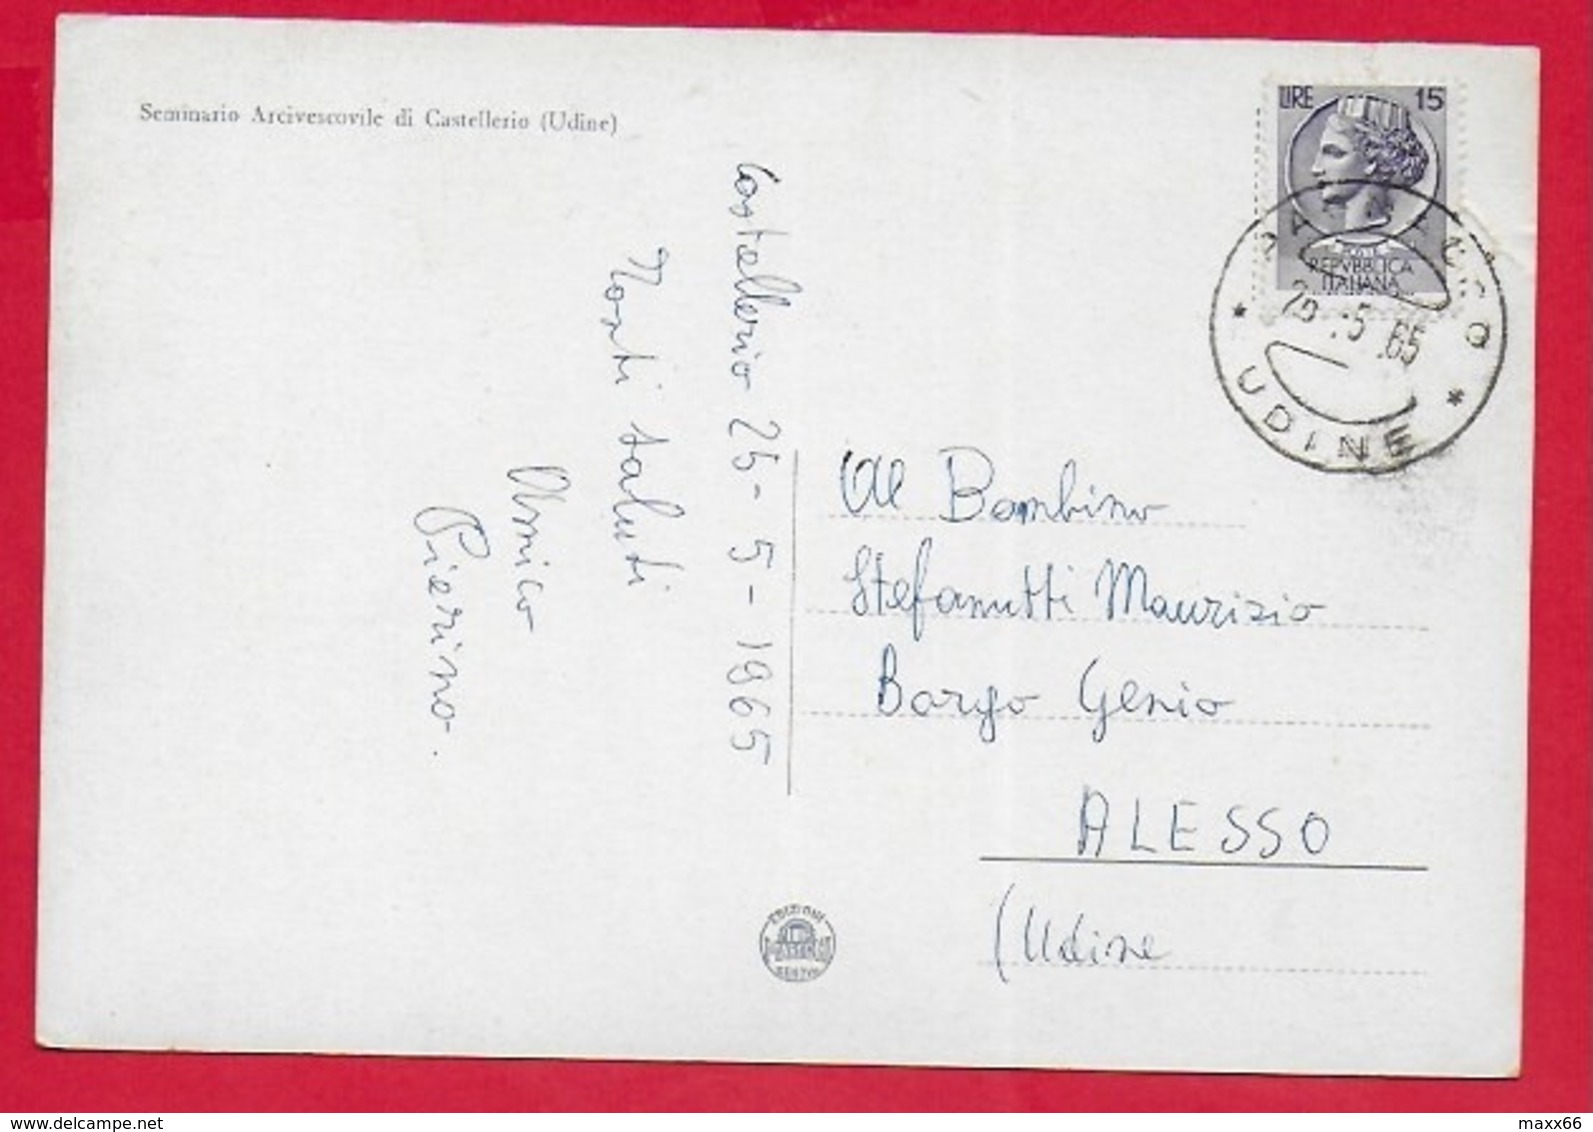 Seminario Arcivescovile di Castellerio (Udine)
LIRE 15
POSTE
REPVBBLICA
ITALIANA
UDINE
.5 .65
Castellerio 25-5-1965
Tanti saluti
Amico
Pierino.
Al Bambino
Stefanutti Maurizio
Borgo Genio
ALESSO
(Udine
EDIZIONI
GENOVA
www.delcampe.net
maxx66